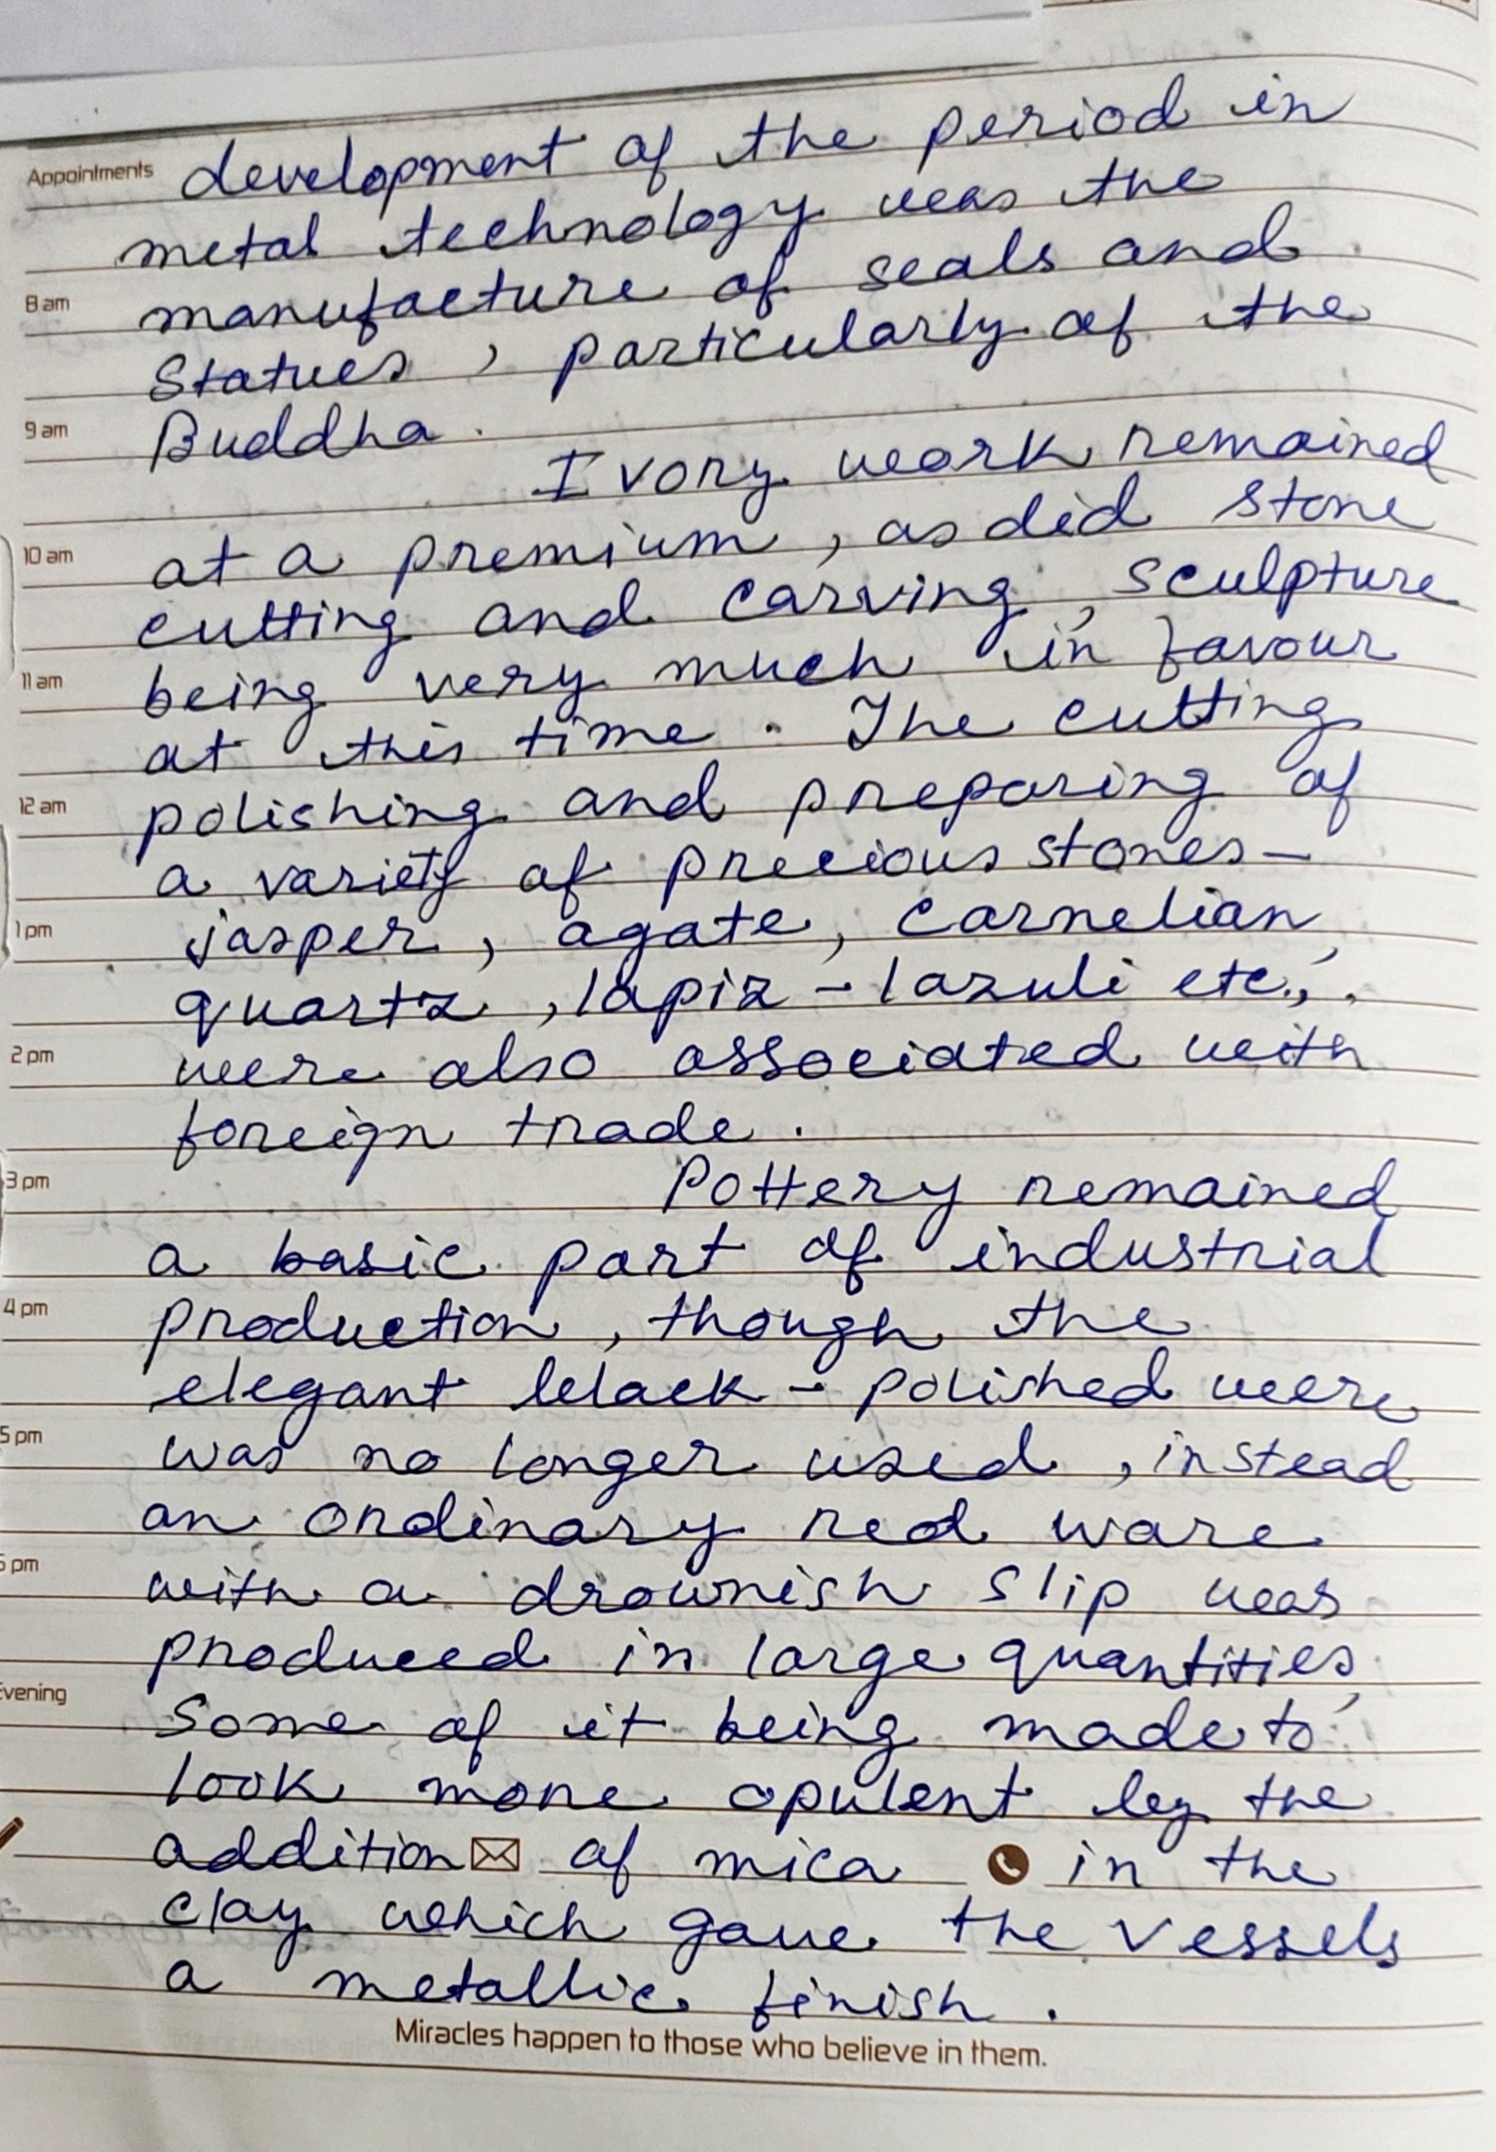 Appointments
development of the period in
metal technology was the
8 am
manufacture of seals and
Statues, particularly of the
9 am
Buddha.
Ivory work remained
10 am
at a premium, as did stone
cutting and carving, sculpture
11 am
being very much in favour
at this time. The cutting
12 am
polishing and preparing of
a variety of precious stones-
1 pm
jasper, agate, carnelian,
quartz, lapiz-lazuli etc.,
2 pm
were also associated with
foreign trade.
3 pm
Pottery remained
a basic part of industrial
4 pm
production, though the
elegant black-polished were
5 pm
was no longer used, instead
an ordinary red ware
pm
with a drownish slip was
produced in large quantities,
vening
some of it being made to
look more opulent by the
addition of mica in the
clay which gave the vessels
a metallic finish.
Miracles happen to those who believe in them.